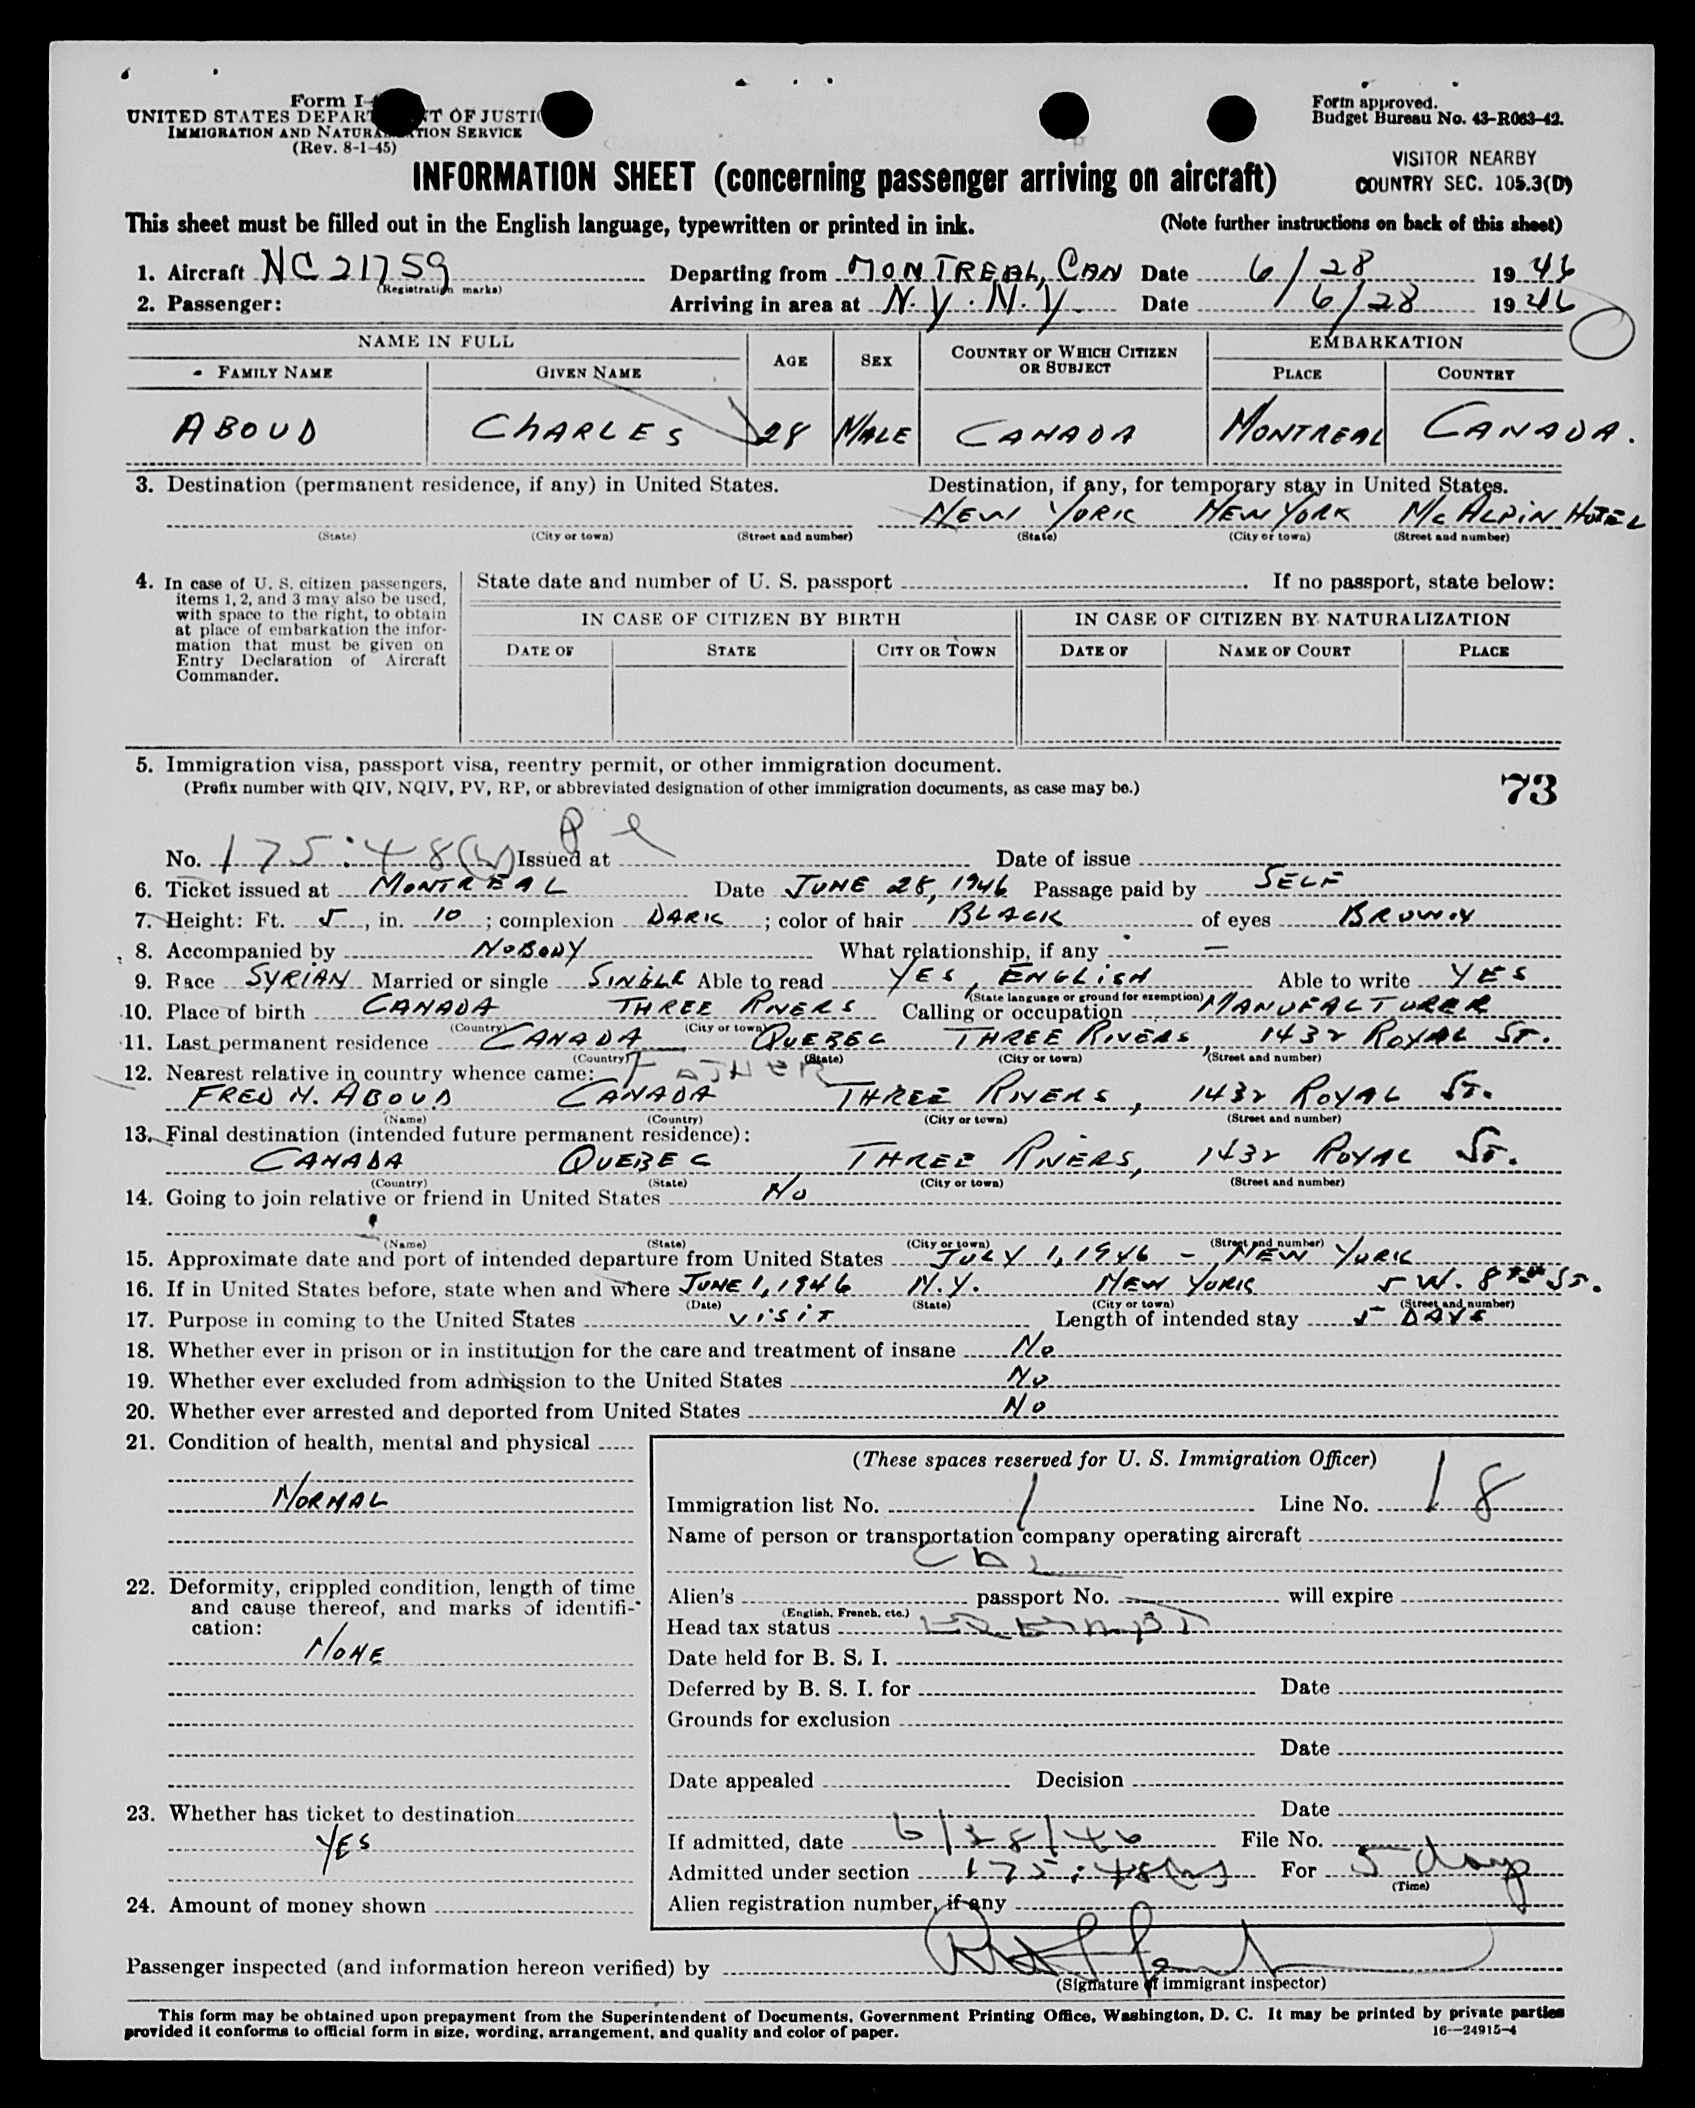 Form I-
UNITED STATES DEPART T OF JUSTI
IMMIGRATION AND NATURA TION SERVICE
(Rev. 8-1-45)
Form approved.
Budget Bureau No. 43-R063-42.
VISITOR NEARBY
COUNTRY SEC. 105.3(D)
INFORMATION SHEET (concerning passenger arriving on aircraft)
This sheet must be filled out in the English language, typewritten or printed in ink. (Note further instructions on back of this sheet)
1. Aircraft NC 21759 Departing from MONTREAL, CAN Date 6/28 1946
(Registration marks)
2. Passenger: Arriving in area at N.Y. N.Y. Date 6/28 1946
NAME IN FULL AGE SEX COUNTRY OF WHICH CITIZEN OR SUBJECT EMBARKATION
FAMILY NAME GIVEN NAME PLACE COUNTRY
ABOUD CHARLES 28 MALE CANADA MONTREAL CANADA.
3. Destination (permanent residence, if any) in United States. Destination, if any, for temporary stay in United States.
NEW YORK NEW YORK McALPIN HOTEL
(State) (City or town) (Street and number) (State) (City or town) (Street and number)
4. In case of U. S. citizen passengers, items 1, 2, and 3 may also be used, with space to the right, to obtain at place of embarkation the information that must be given on Entry Declaration of Aircraft Commander.
State date and number of U. S. passport . If no passport, state below:
IN CASE OF CITIZEN BY BIRTH IN CASE OF CITIZEN BY NATURALIZATION
DATE OF STATE CITY OR TOWN DATE OF NAME OF COURT PLACE
5. Immigration visa, passport visa, reentry permit, or other immigration document.
(Prefix number with QIV, NQIV, PV, RP, or abbreviated designation of other immigration documents, as case may be.)
73
No. 175:48 Issued at Date of issue
6. Ticket issued at MONTREAL Date JUNE 28, 1946 Passage paid by SELF
7. Height: Ft. 5, in. 10; complexion DARK; color of hair BLACK of eyes BROWN
8. Accompanied by NOBODY What relationship, if any —
9. Race SYRIAN Married or single SINGLE Able to read YES, ENGLISH Able to write YES
(State language or ground for exemption)
10. Place of birth CANADA THREE RIVERS Calling or occupation MANUFACTURER
(Country) (City or town)
11. Last permanent residence CANADA QUEBEC THREE RIVERS, 1432 ROYAL ST.
(Country) (State) (City or town) (Street and number)
12. Nearest relative in country whence came: FATHER
FRED N. ABOUD CANADA THREE RIVERS, 1432 ROYAL ST.
(Name) (Country) (City or town) (Street and number)
13. Final destination (intended future permanent residence):
CANADA QUEBEC THREE RIVERS, 1432 ROYAL ST.
(Country) (State) (City or town) (Street and number)
14. Going to join relative or friend in United States NO
(Name) (State) (City or town) (Street and number)
15. Approximate date and port of intended departure from United States JULY 1, 1946 - NEW YORK
16. If in United States before, state when and where JUNE 1, 1946 N.Y. NEW YORK 5 W. 8TH ST.
(Date) (State) (City or town) (Street and number)
17. Purpose in coming to the United States VISIT Length of intended stay 5 DAYS
18. Whether ever in prison or in institution for the care and treatment of insane No
19. Whether ever excluded from admission to the United States No
20. Whether ever arrested and deported from United States No
21. Condition of health, mental and physical
NORMAL
22. Deformity, crippled condition, length of time and cause thereof, and marks of identification:
NONE
23. Whether has ticket to destination
YES
24. Amount of money shown
(These spaces reserved for U. S. Immigration Officer)
Immigration list No. 1 Line No. 18
Name of person or transportation company operating aircraft
Alien's passport No. will expire
(English, French, etc.)
Head tax status Exempt
Date held for B. S. I.
Deferred by B. S. I. for Date
Grounds for exclusion
Date
Date appealed Decision
Date
If admitted, date 6/28/46 File No.
Admitted under section 175:48 For 5 days
(Time)
Alien registration number, if any
Passenger inspected (and information hereon verified) by
(Signature of immigrant inspector)
This form may be obtained upon prepayment from the Superintendent of Documents, Government Printing Office, Washington, D. C. It may be printed by private parties
provided it conforms to official form in size, wording, arrangement, and quality and color of paper.
16—24915-4